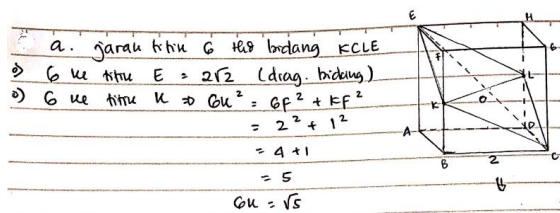 a. jarak titik G thd bidang KCLE
G ke titik E = 2√2 (diag. bidang)
G ke titik K ⇒ GK² = GF² + KF²
= 2² + 1²
= 4 + 1
= 5
GK = √5
E
H
F
G
L
K
O
A
D
B
2
C